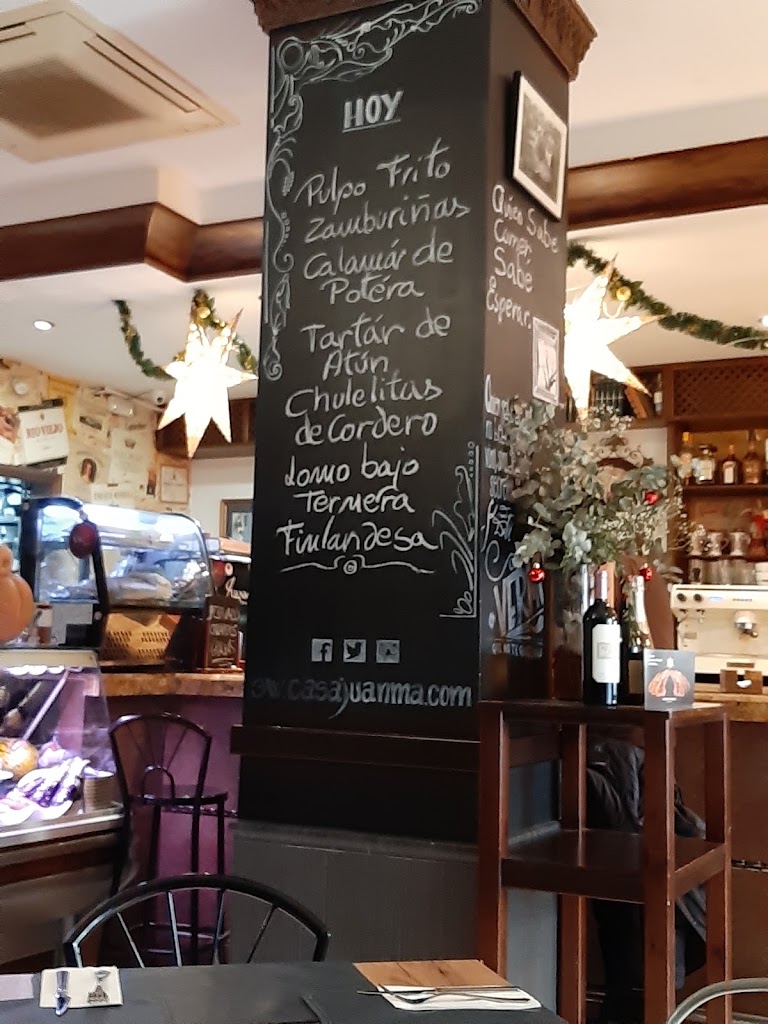 HOY
Pulpo Frito
Zamburiñas
Calamár de
Potéra
Tartár de
Atún
Chuleլitas
de Cordero
Lomo bajo
Ternera
Finlandesa
casajuanma.com
Quien Sabe
Comer,
Sabe
Esperar.
RIO VIEJO